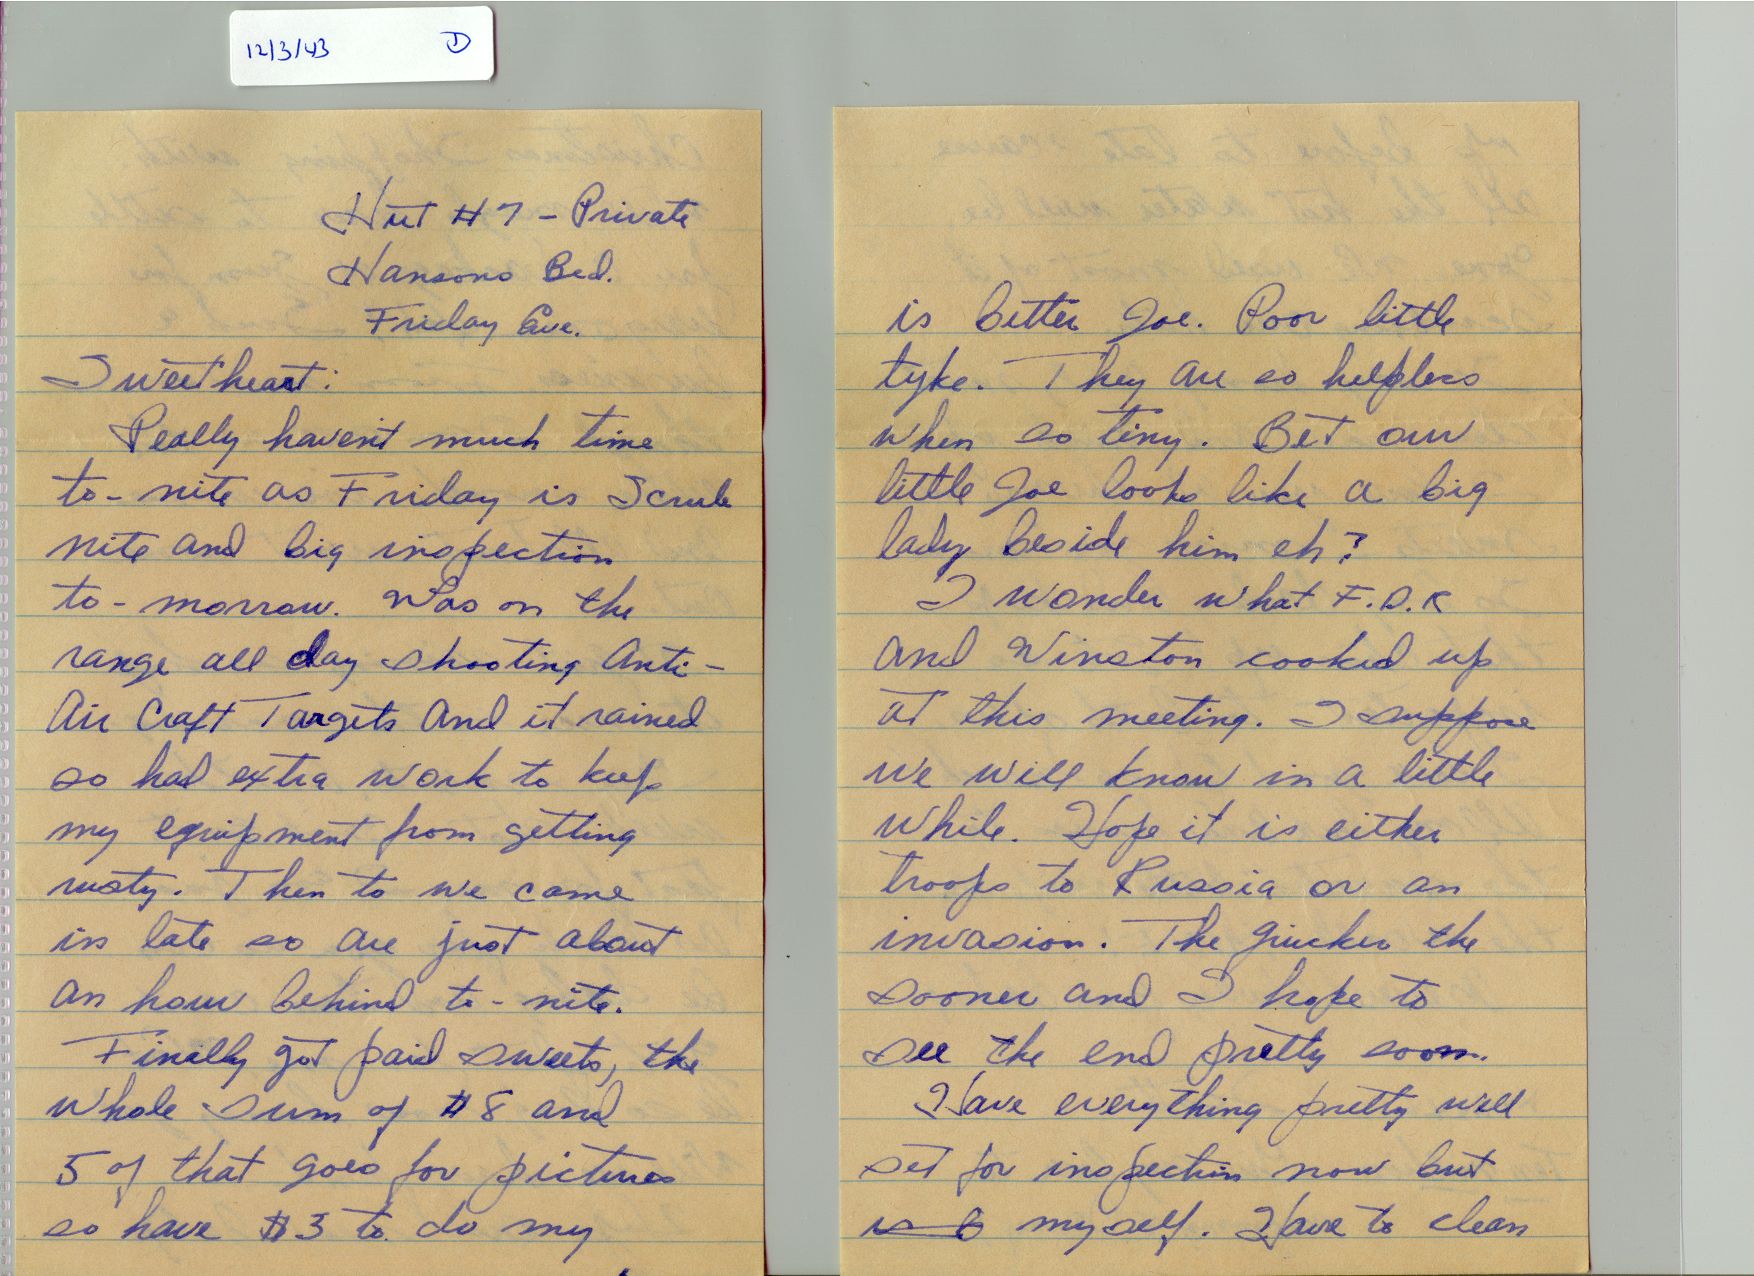 12/3/43 D
Hut #7 - Private
Hansons Bed.
Friday Eve.
Sweetheart:
Really havent much time
to-nite as Friday is Scrub
nite and big inspection
to-morrow. Was on the
range all day shooting Anti-
Air Craft Targets and it rained
so had extra work to keep
my equipment from getting
rusty. Then to we came
in late so are just about
an hour behind to-nite.
Finally got paid sweets, the
whole sum of $8 and
5 of that goes for pictures
so have $3 to do my
is better Joe. Poor little
tyke. They are so helpless
when so tiny. Bet our
little Joe looks like a big
lady beside him eh?
I wonder what F.D.R
and Winston cooked up
at this meeting. I suppose
we will know in a little
while. Hope it is either
troops to Russia or an
invasion. The quicker the
sooner and I hope to
see the end pretty soon.
Have everything pretty well
set for inspection now but
myself. Have to clean